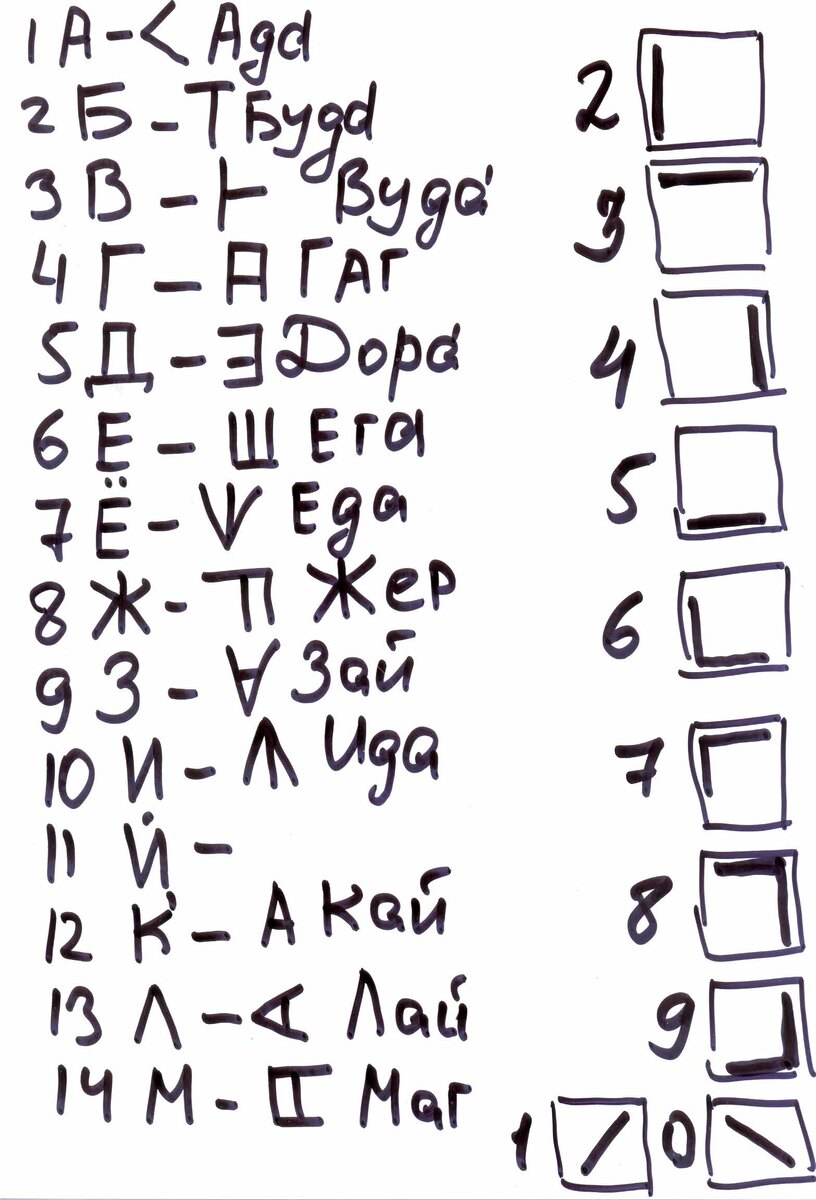 1 А - < Ада
2 Б - Т Буда
3 В - Ⱶ Вуда́
4 Г - Я ГАГ
5 Д - Ǝ Дора́
6 Е - Ш Ега
7 Ё - Ѱ Еда
8 Ж - П Жер
9 З - ∀ Зай
10 И - Ʌ Ида
11 Й -
12 К - А Кай
13 Л - ∢ Лай
14 М - Д Маг
2
3
4
5
6
7
8
9
1 0